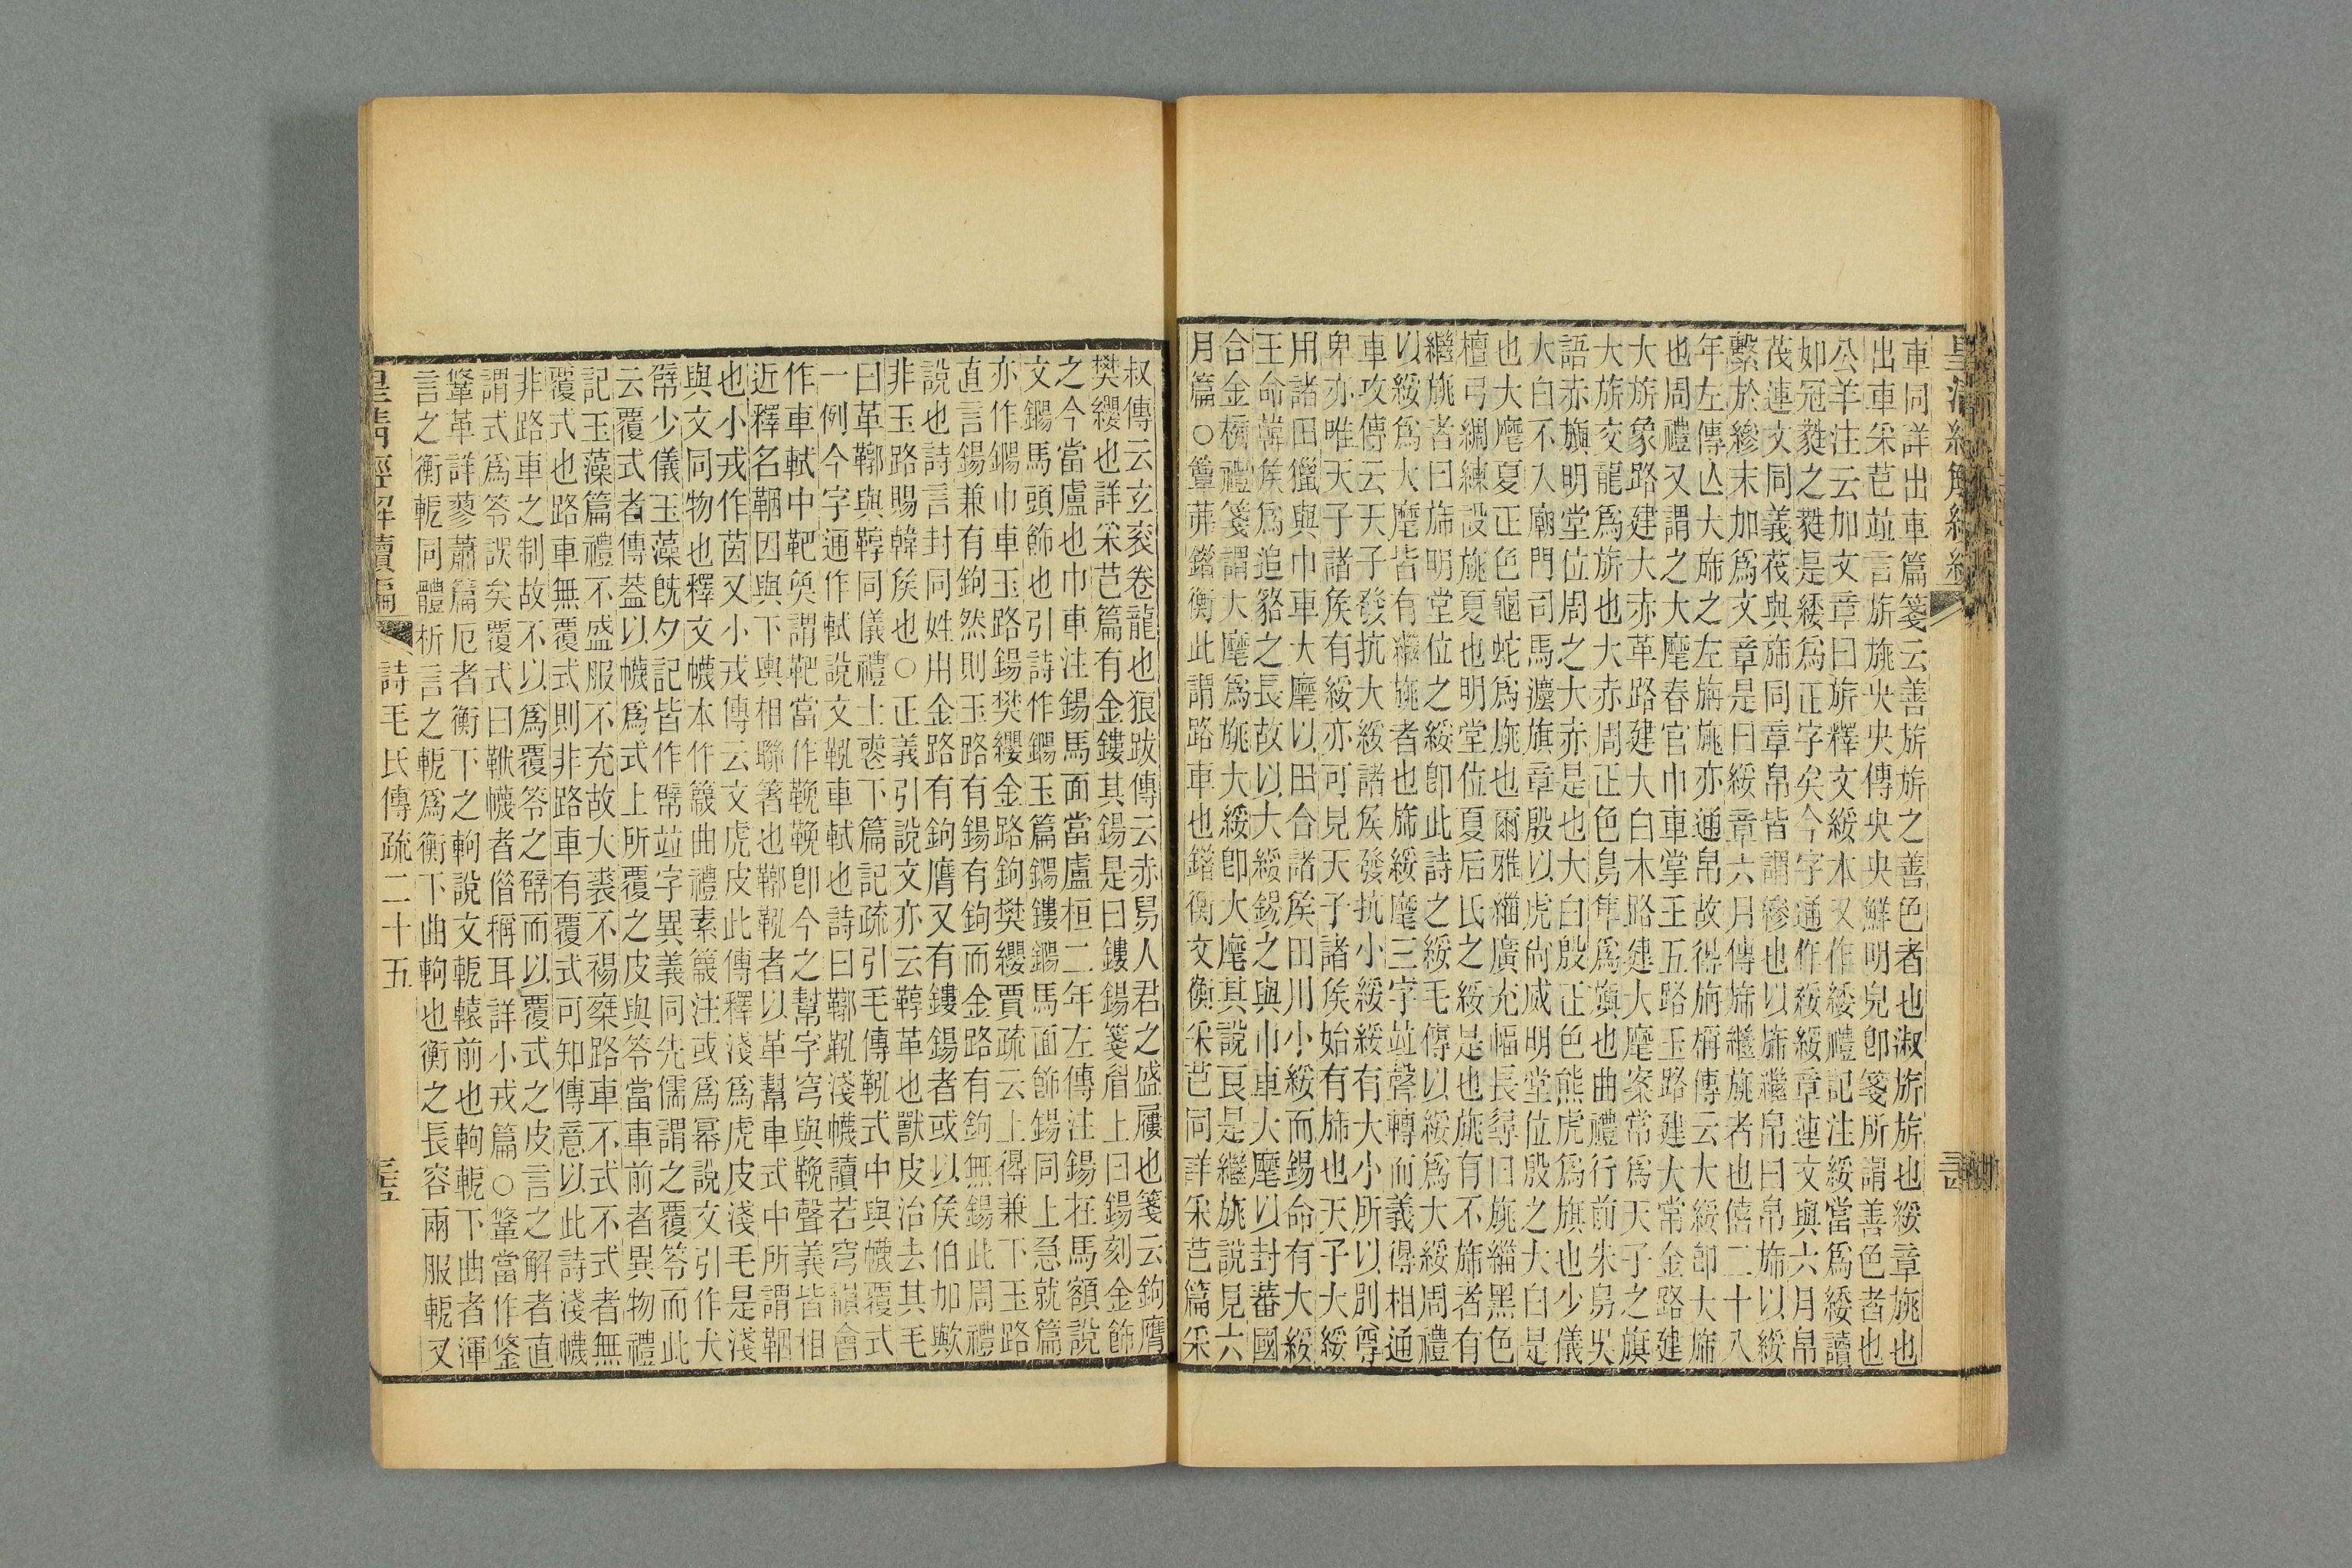 車同詳出車篇箋云善旂旂之善色者也淑旂旂也綏章旐也
出車采芑竝言旂旐央央傳央央鮮明皃卽箋所謂善色者也
公羊注云加文章曰旂釋文綏本又作緌禮記注綏當爲緌讀
如冠蕤之蕤是緌爲正字矣今字通作綏綏章連文與六月帛
茷連文同義茷與旆同章帛皆謂縿也以旆繼帛曰帛旆以綏
繫於縿末加爲文章是曰綏章六月傳旆繼旐者也僖二十八
年左傳亾大旆之左旃旐亦通帛故得旃稱傳云大綏卽大旆
也周禮又謂之大麾春官巾車掌王五路玉路建大常金路建
大旂象路建大赤革路建大白木路建大麾案常爲天子之旗
大旂交龍爲旂也大赤周正色鳥隼爲旟也曲禮行前朱鳥吳
語赤旟明堂位周之大赤是也大白殷正色熊虎爲旗也少儀
大白不入廟門司馬灋旗章殷以虎尙威明堂位殷之大白是
也大麾夏正色龜蛇爲旐也爾雅緇廣充幅長尋曰旐緇黑色
檀弓綢練設旐夏也明堂位夏后氏之綏是也旐有不旆者有
繼旐者曰旆明堂位之綏卽此詩之綏毛傳以綏爲大綏周禮
以綏爲大麾皆有繼旐者也旆綏麾三字竝聲轉而義得相通
車攻傳云天子發抗大綏諸矦發抗小綏綏有大小所以別尊
卑亦唯天子諸矦有綏亦可見天子諸矦始有旆也天子大綏
用諸田獵與巾車大麾以田合諸矦田川小綏而錫命有大綏
王命韓矦爲追貉之長故以大綏錫之與巾車大麾以封蕃國
合金櫎禮箋謂大麾爲旐大綏卽大麾其說良是繼旐說見六
月篇○簟茀鐕衡此謂路車也鐕衡文衡采芑同詳采芑篇采
叔傳云玄衮卷龍也狼跋傳云赤舃人君之盛屨也箋云鉤膺
樊纓也詳采芑篇有金鏤其鍚是曰鏤鍚箋眉上曰鍚刻金飾
之今當盧也巾車注鍚馬面當盧桓二年左傳注鍚在馬額說
文鐊馬頭飾也引詩作鐊玉篇鐊鏤鐊馬面飾鍚同上急就篇
亦作鐊巾車玉路鍚樊纓金路鉤樊纓賈疏云上得兼下玉路
直言鍚兼有鉤然則玉路有鍚有鉤而金路有鉤無鍚此周禮
說也詩言封同姓用金路有鉤膺又有鏤鍚者或以矦伯加歟
非玉路賜韓矦也○正義引說文亦云鞹革也獸皮治去其毛
曰革鞹與鞟同儀禮士喪下篇記疏引毛傳鞃式中與幭覆式
一例今字通作軾說文鞃車軾也詩曰鞹鞃淺幭讀若穹韻會
作車軾中靶奐謂靶當作鞔鞔卽今之幫字穹與鞔聲義皆相
近釋名靷因與下輿相聯著也鞹鞃者以革幫車式中所謂靷
也小戎作茵又小戎傳云文虎皮此傳釋淺爲虎皮淺毛是淺
與文同物也釋文幭本作簚曲禮素簚注或爲幂說文引作犬
幦少儀玉藻旣夕記皆作幦竝字異義同先儒謂之覆笭而此
云覆式者傳葢以幭爲式上所覆之皮與笭當車前者異物禮
記玉藻篇禮不盛服不充故大裘不裼椉路車不式不式者無
覆式也路車無覆式則非路車有覆式可知傳意以此詩淺幭
非路車之制故不以爲覆笭之幦而以覆式之皮言之解者直
謂式爲笭誤矣覆式曰鞎幭者偕稱耳詳小戎篇○鞗當作鋚
鞗革詳蓼蕭篇厄者衡下之軥說文軶轅前也軥軶下曲者渾
言之衡軶同體析言之軶爲衡下曲軥也衡之長容兩服軶又
皇清經解續編　詩毛氏傳疏二十五